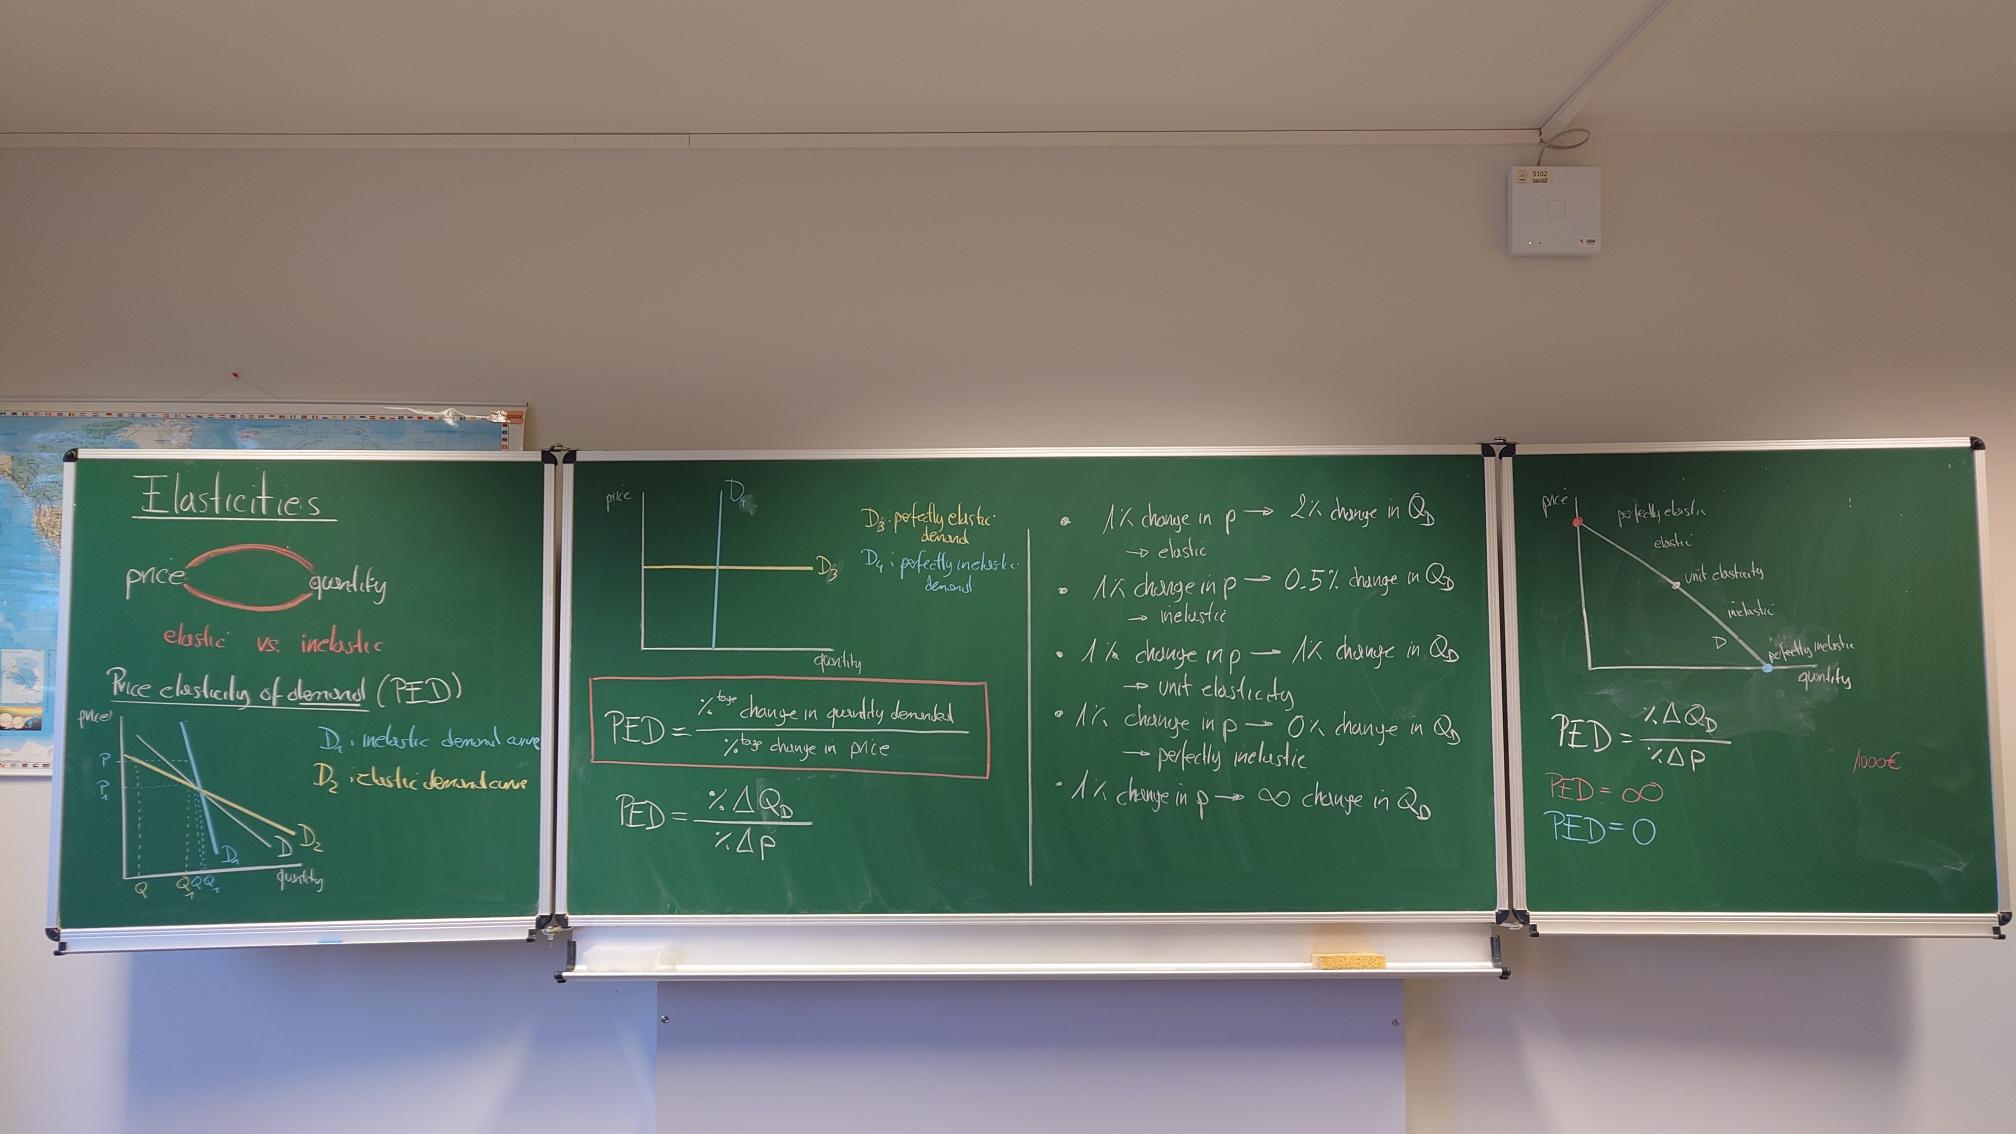 Elasticities
price quantity
elastic vs. inelastic
Price elasticity of demand (PED)
price
D₁: inelastic demand curve
D₂: elastic demand curve
P
P₁
D₂
D
D₁
quantity
Q Q₁ Q Q₁
price
D₄
D₃: perfectly elastic demand
D₄: perfectly inelastic demand
D₃
quantity
PED = %tage change in quantity demanded / %tage change in price
PED = % Δ Q_D / % Δ p
• 1% change in p → 2% change in Q_D
→ elastic
• 1% change in p → 0.5% change in Q_D
→ inelastic
• 1% change in p → 1% change in Q_D
→ unit elasticity
• 1% change in p → 0% change in Q_D
→ perfectly inelastic
• 1% change in p → ∞ change in Q_D
price
perfectly elastic
elastic
unit elasticity
inelastic
D
perfectly inelastic
quantity
PED = % Δ Q_D / % Δ p
1000€
PED = ∞
PED = 0
5102